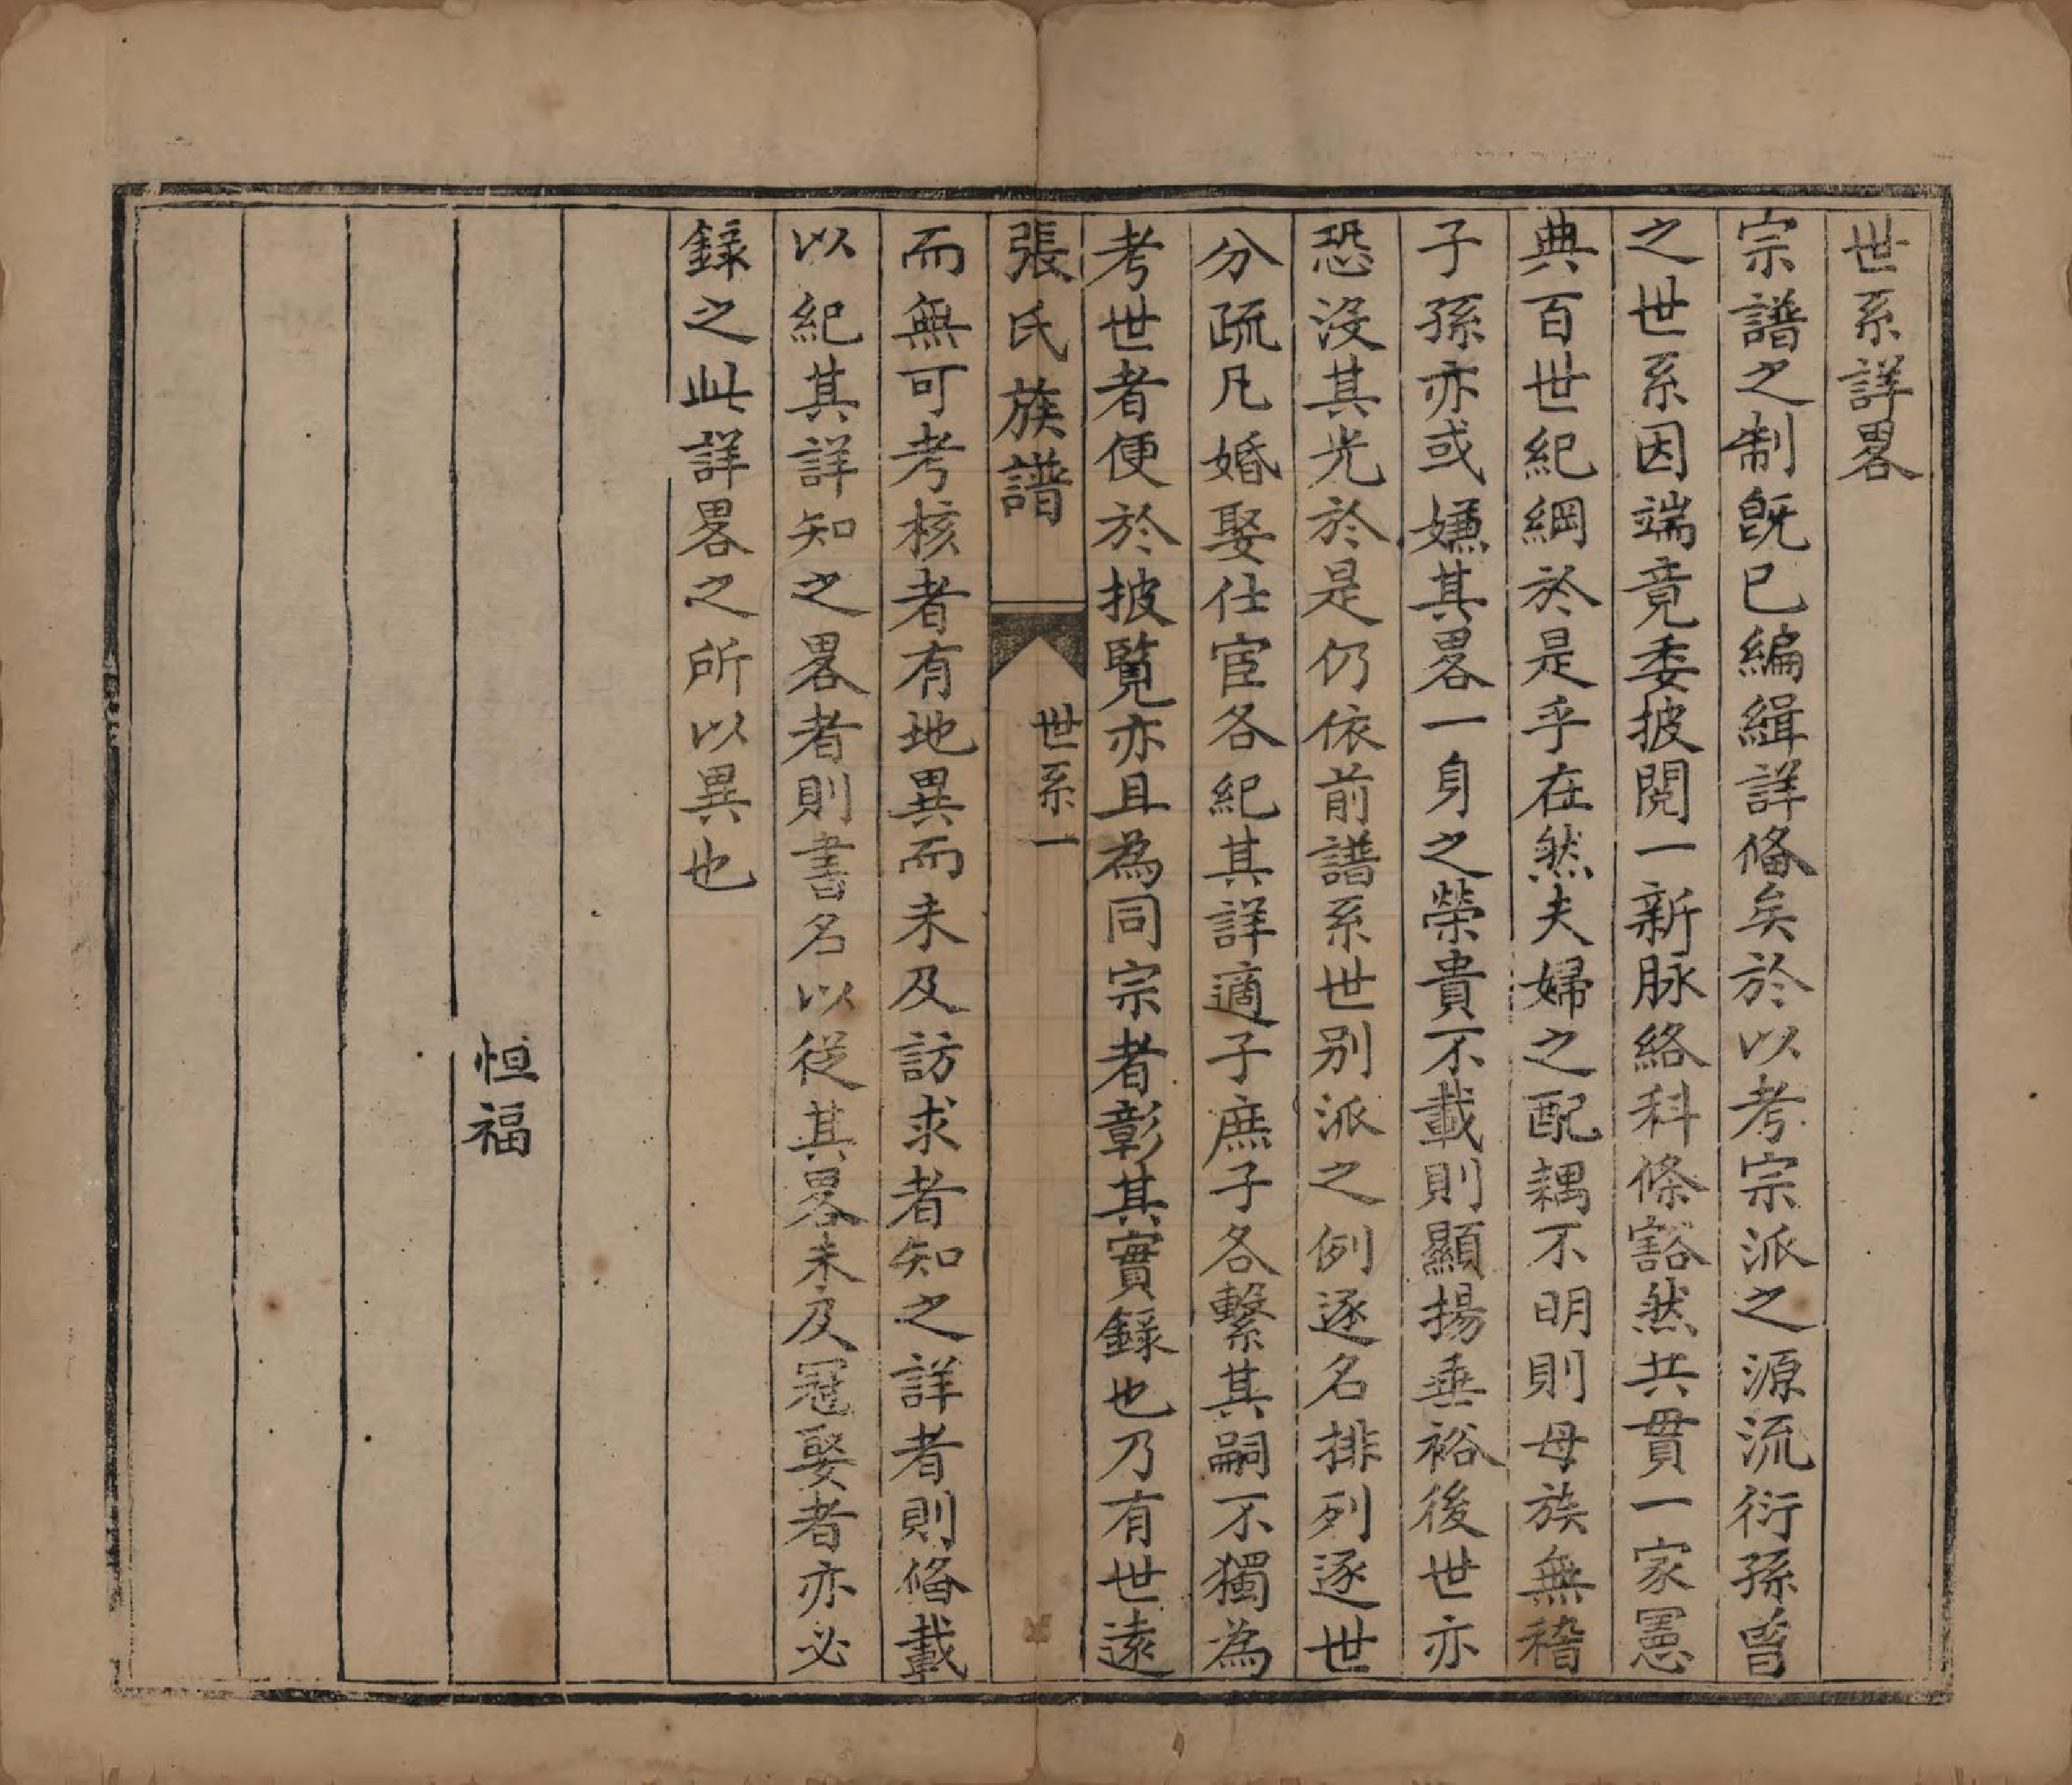 世系詳畧
宗譜之制旣已編緝詳俻矣於以考宗派之源流衍孫曾
之世系因端竟委披閱一新脉絡科條豁然共貫一家憲
典百世紀綱於是乎在然夫婦之配耦不明則母族無稽
子孫亦或嫌其畧一身之榮貴不載則顯揚垂裕後世亦
恐沒其光於是仍依前譜系世别派之例逐名排列逐世
分疏凡婚娶仕宦各紀其詳適子庶子各繫其嗣不獨為
考世者便於披覧亦且為同宗者彰其實録也乃有世逺
張氏族譜 世系一
而無可考核者有地異而未及訪求者知之詳者則俻載
以紀其詳知之畧者則書名以從其畧未及冠娶者亦必
録之此詳畧之所以異也
恒福